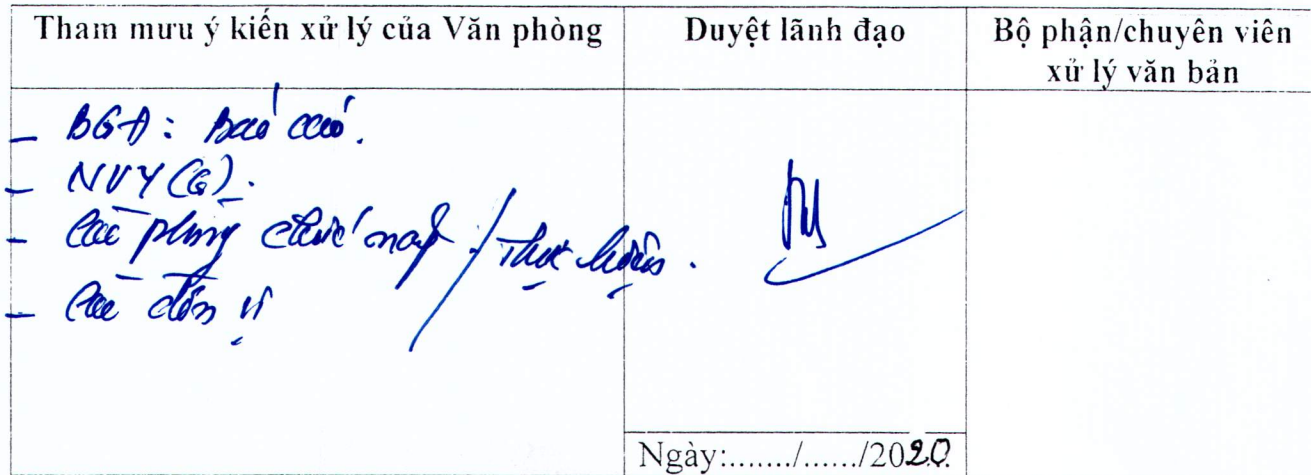 Tham mưu ý kiến xử lý của Văn phòng
Duyệt lãnh đạo
Bộ phận/chuyên viên
xử lý văn bản
- BGĐ: Báo cáo.
- NVY (G).
- Các phòng chức năng / Thực hiện.
- Các đơn vị
Ngày:......./....../2020